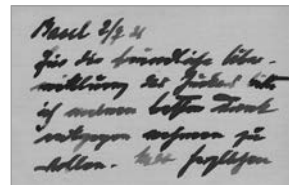 Basel 2/7 21
für die freundliche Über-
mittlung des
ich meinen besten Dank
entgegen nehmen zu
wollen. Mit herzlichen